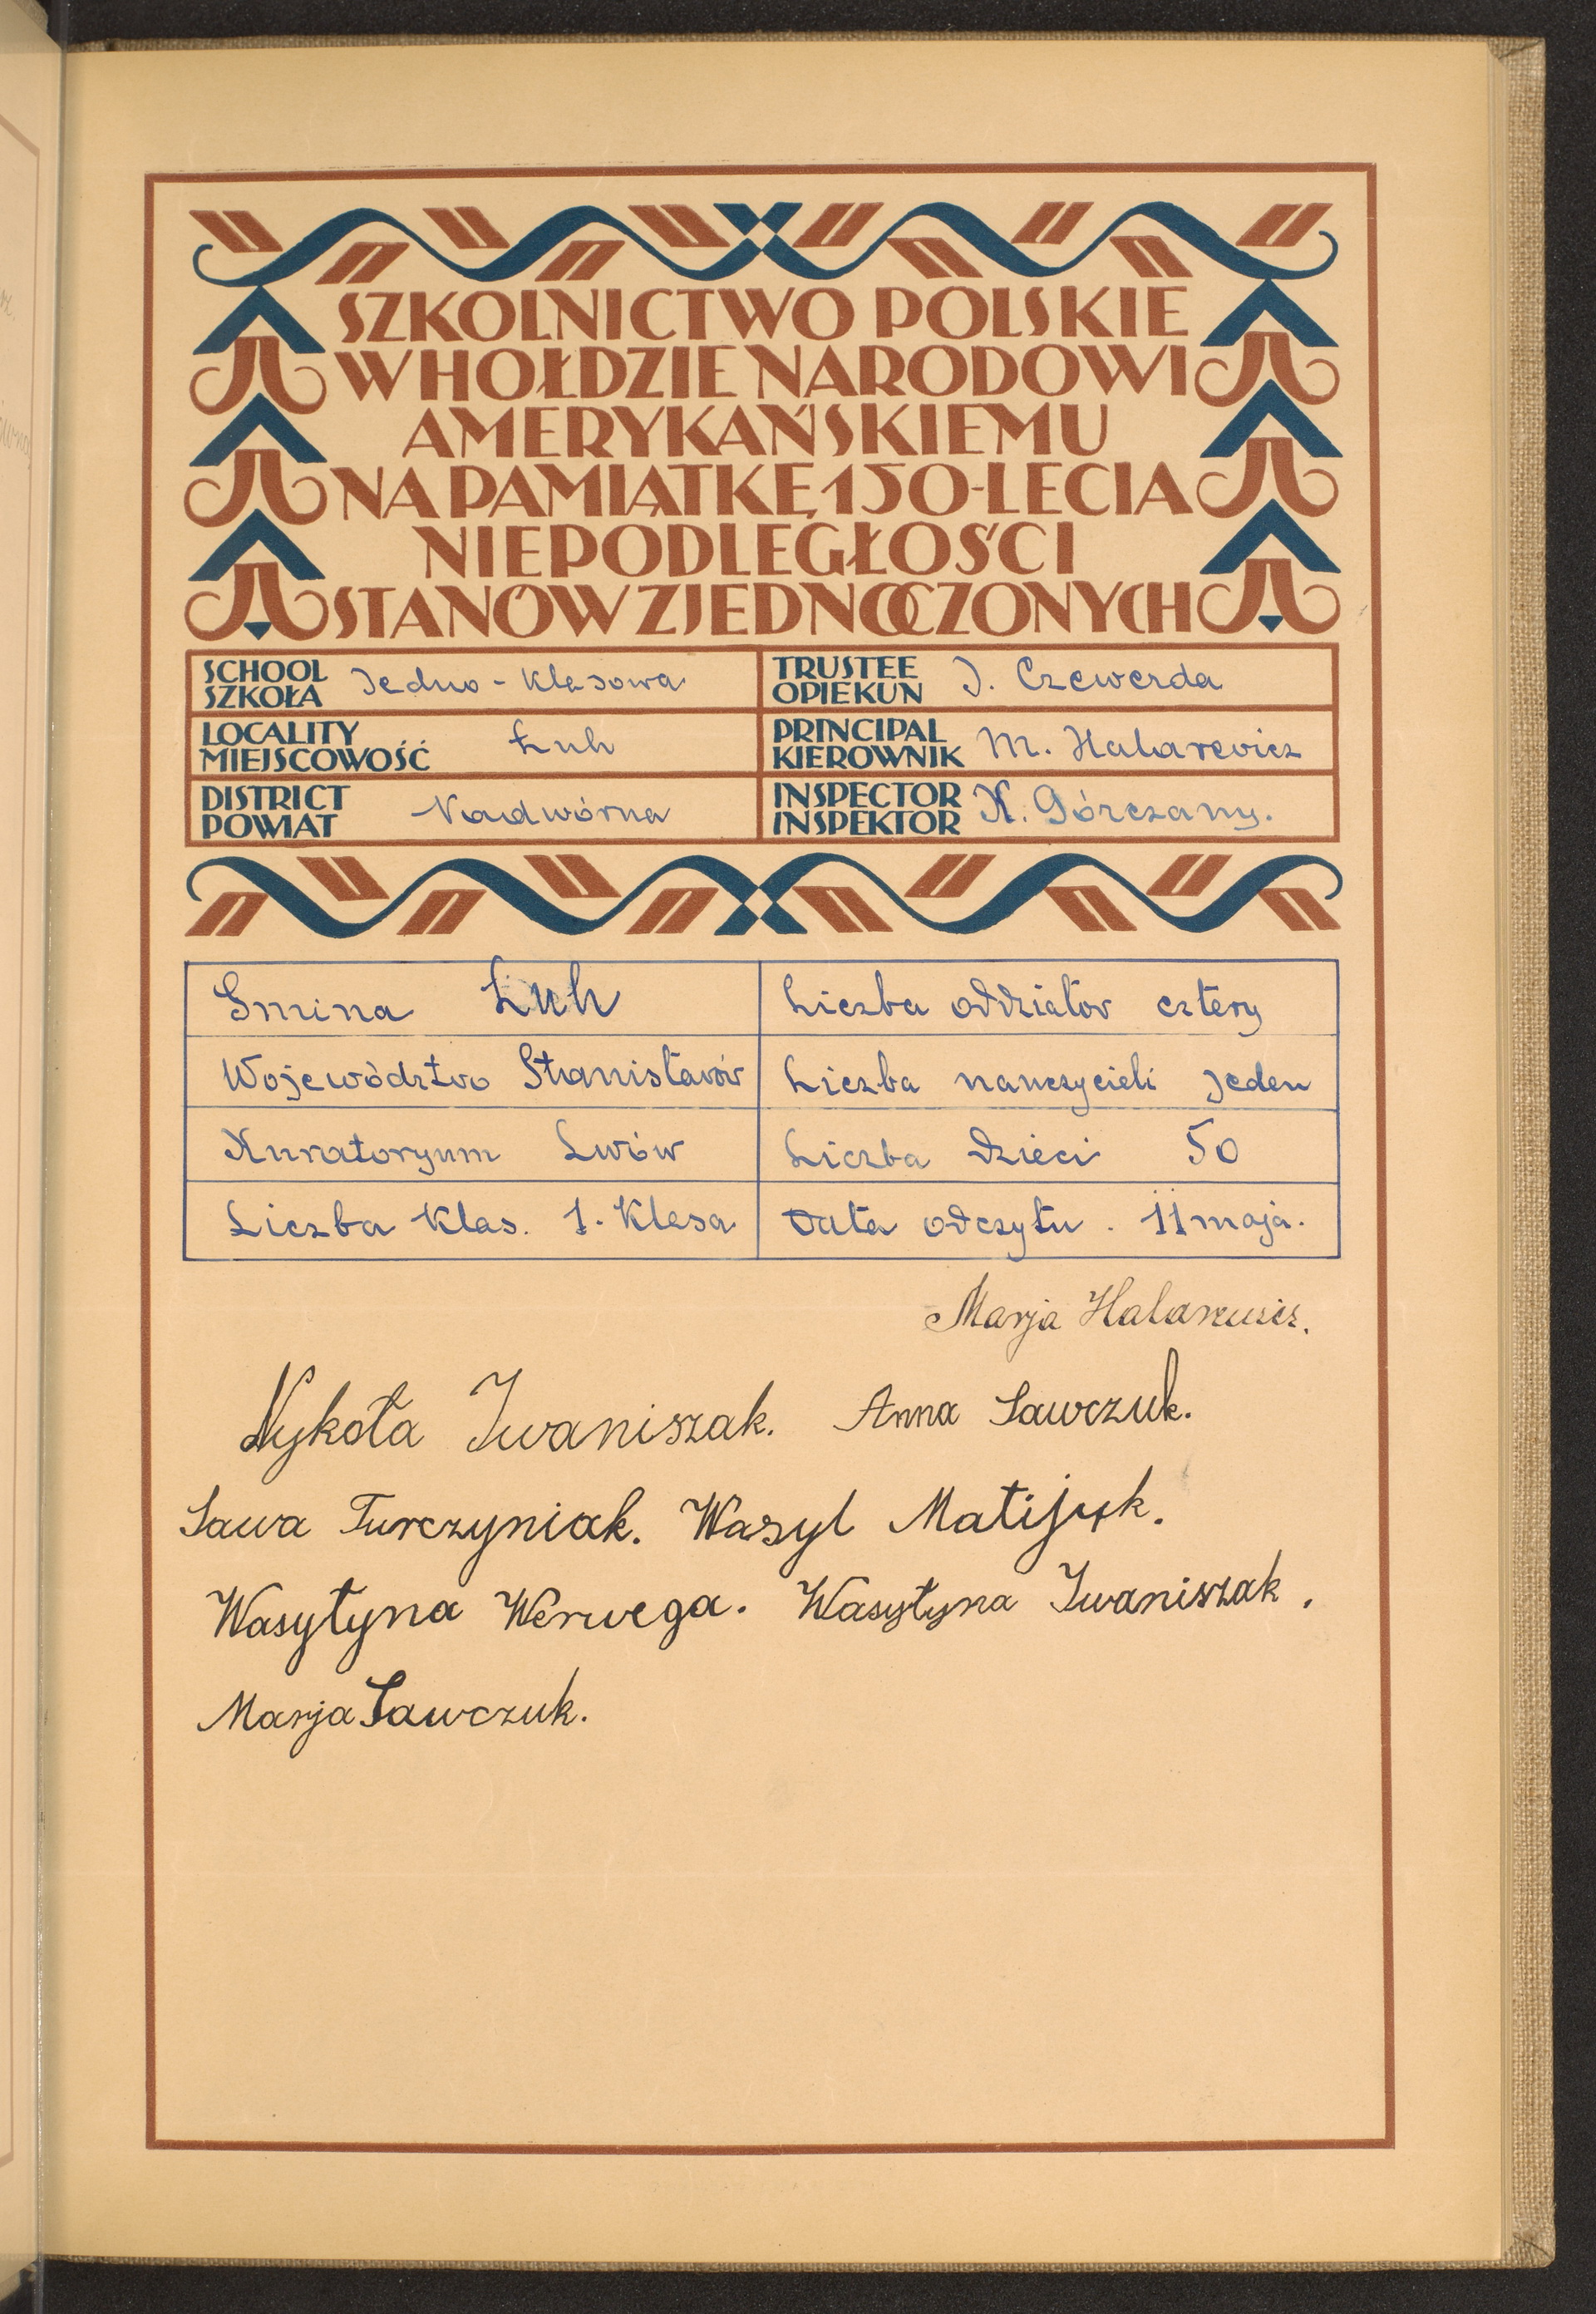 SZKOLNICTWO POLSKIE
W HOŁDZIE NARODOWI
AMERYKAŃSKIEMU
NA PAMIĄTKĘ 150-LECIA
NIEPODLEGŁOŚCI
STANÓW ZJEDNOCZONYCH
SCHOOL SZKOŁA Jedno-klasowa
TRUSTEE OPIEKUN J. Czewerda
LOCALITY MIEJSCOWOŚĆ Łuh
PRINCIPAL KIEROWNIK M. Halarevicz
DISTRICT POWIAT Nadwórna
INSPECTOR INSPEKTOR K. Górczany.
Gmina Łuh
Liczba oddziałov cztery
Województvo Stanisławów
Liczba nauczycieli jeden
Kuratoryum Lwów
Liczba dzieci 50
Liczba klas. 1. klasa
Data odczytu. 11 maja.
Marja
Nykoła Iwaniszak. Anna Sawczuk.
Sawa Turczyniak. Wasyl Matijuk.
Wasyłyna Werwega. Wasyłyna Iwaniszak.
Marja Sawczuk.